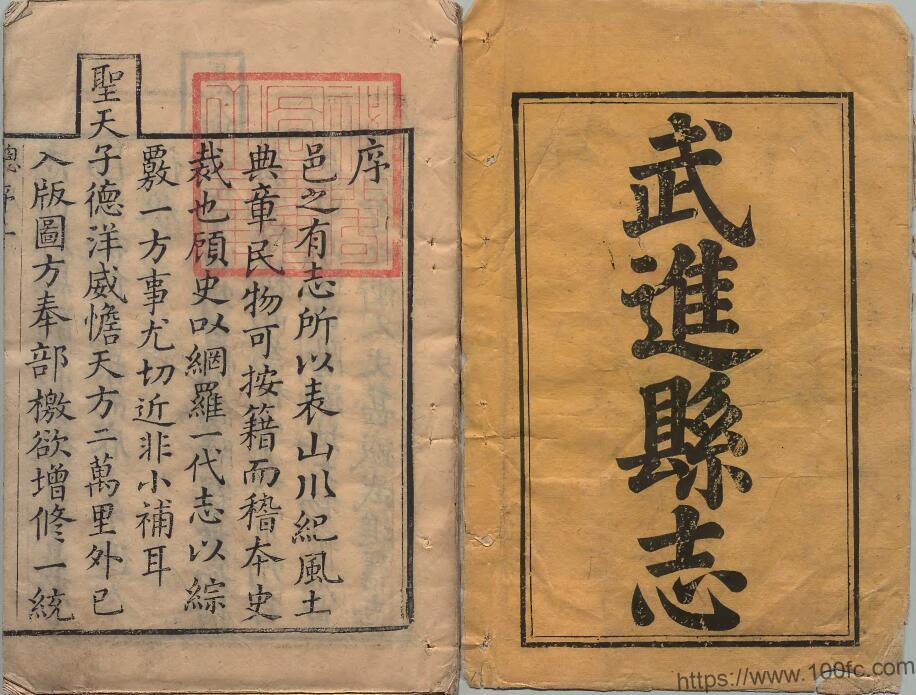 武進縣志
序
邑之有志所以表山川紀風土
典章民物可按籍而稽本史
裁也顧史以網羅一代志以綜
覈一方事尤切近非小補耳
聖天子德洋威憺天方二萬里外已
入版圖方奉部檄欲增修一統
https://www.100fc.com